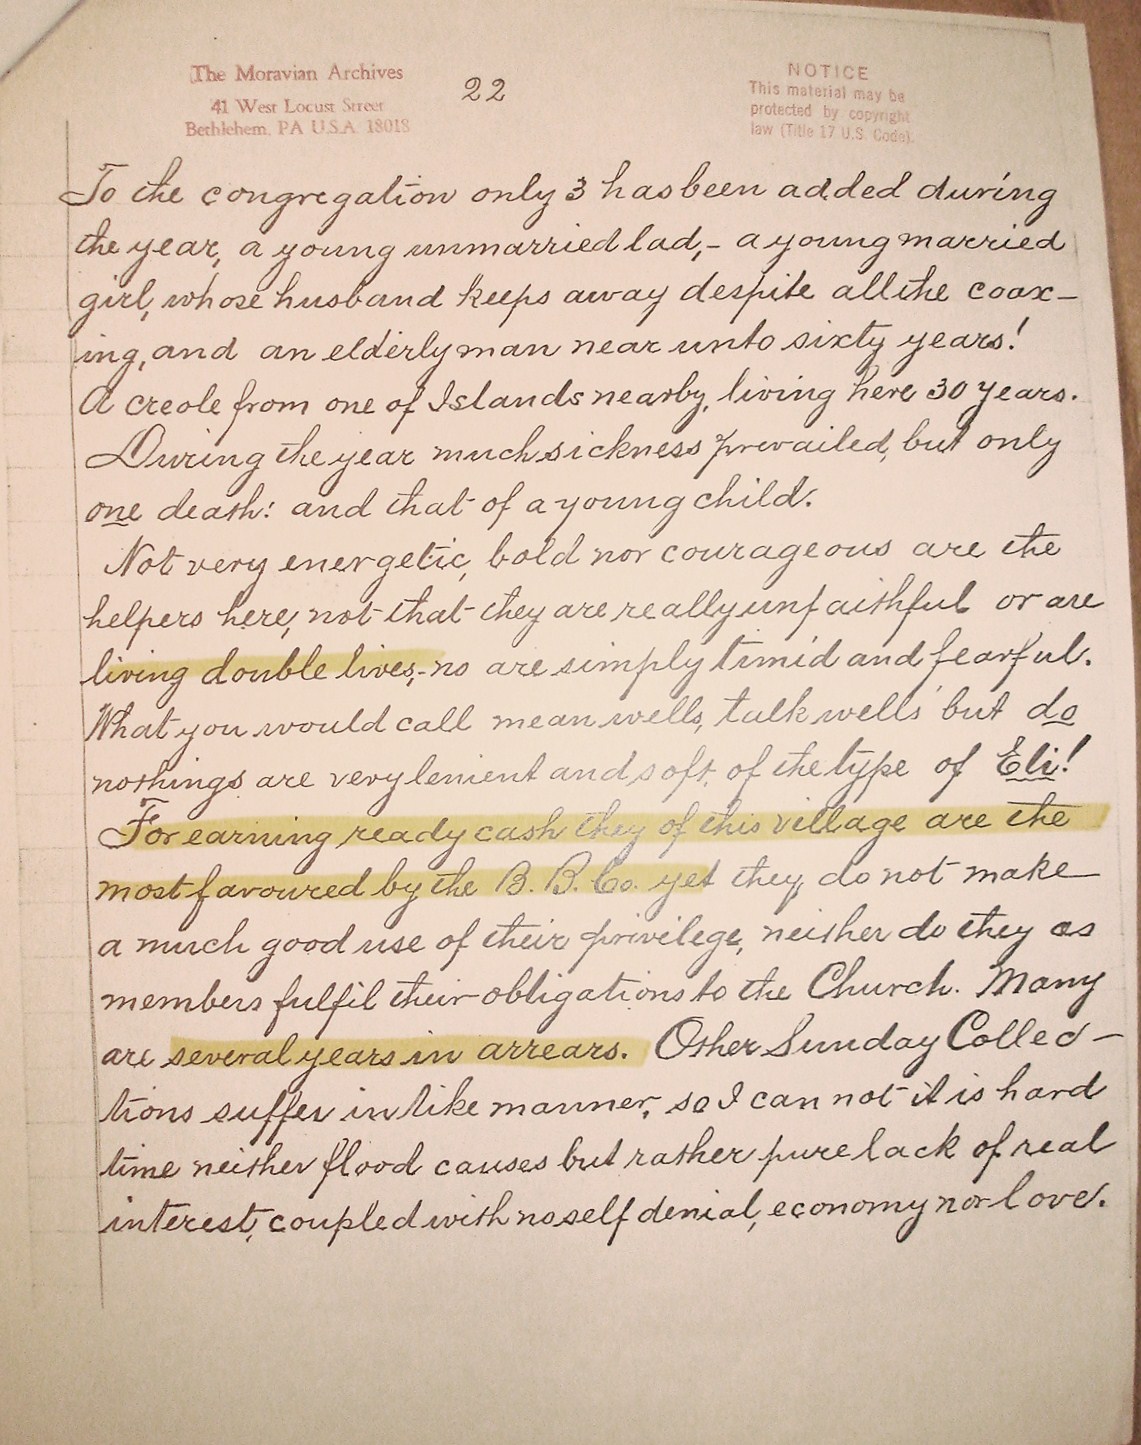 The Moravian Archives
41 West Locust Street
Bethlehem, PA U.S.A. 18018
22
NOTICE
This material may be
protected by copyright
law (Title 17 U.S. Code).
To the congregation only 3 has been added during
the year, a young unmarried lad,- a young married
girl, whose husband keeps away despite all the coax-
ing, and an elderly man near unto sixty years!
A creole from one of Islands nearby, living here 30 years.
During the year much sickness prevailed, but only
one death: and that of a young child.
Not very energetic, bold nor courageous are the
helpers here, not that they are really unfaithful or are
living double lives,- no are simply timid and fearful.
What you would call mean wells, talk wells but do
nothings are very lenient and soft, of the type of Eli!
For earning ready cash they of this village are the
most favoured by the B. B. Co. yet they do not make
a much good use of their privilege, neither do they as
members fulfil their obligations to the Church. Many
are several years in arrears. Other Sunday Collec-
tions suffer in like manner, so I can not it is hard
time neither flood causes but rather pure lack of real
interest, coupled with no self denial, economy nor love.